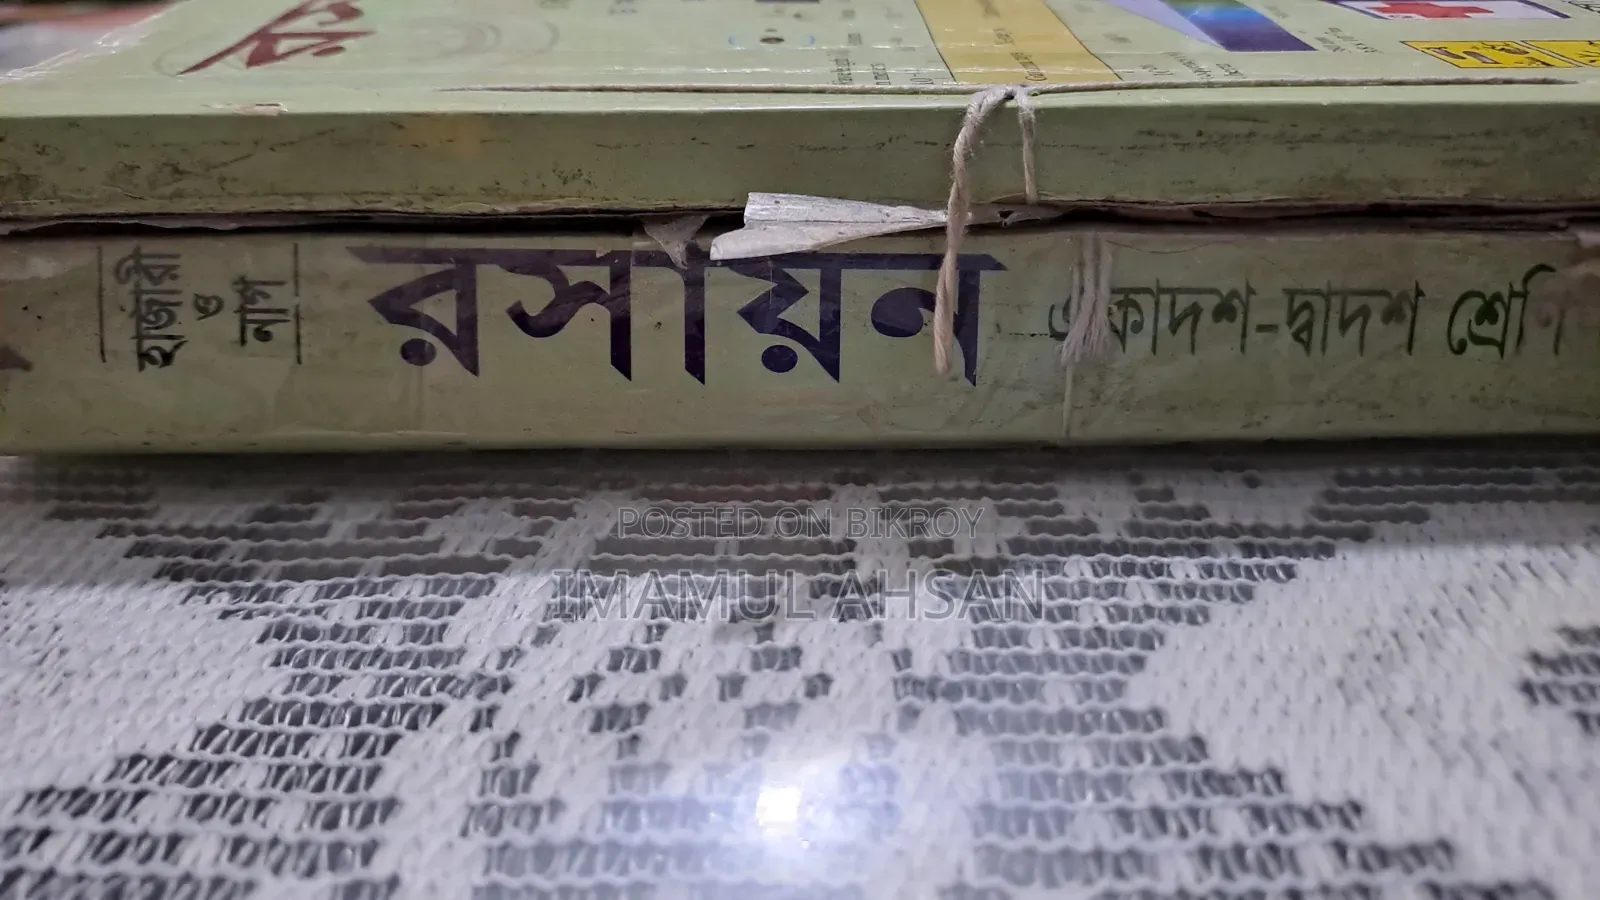 রসা
হাজারী
ও
নাগ
রসায়ন
একাদশ-দ্বাদশ শ্রেণি
POSTED ON BIKROY
IMAMUL AHSAN